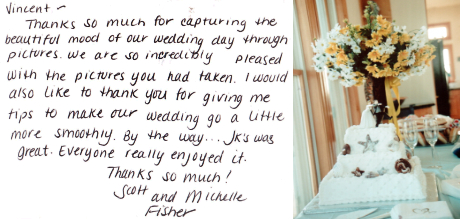 Vincent -
Thanks so much for capturing the
beautiful mood of our wedding day through
pictures. We are so incredibly pleased
with the pictures you had taken. I would
also like to thank you for giving me
tips to make our wedding go a little
more smoothly. By the way... Jk's was
great. Everyone really enjoyed it.
Thanks so much!
Scott and Michelle
Fisher